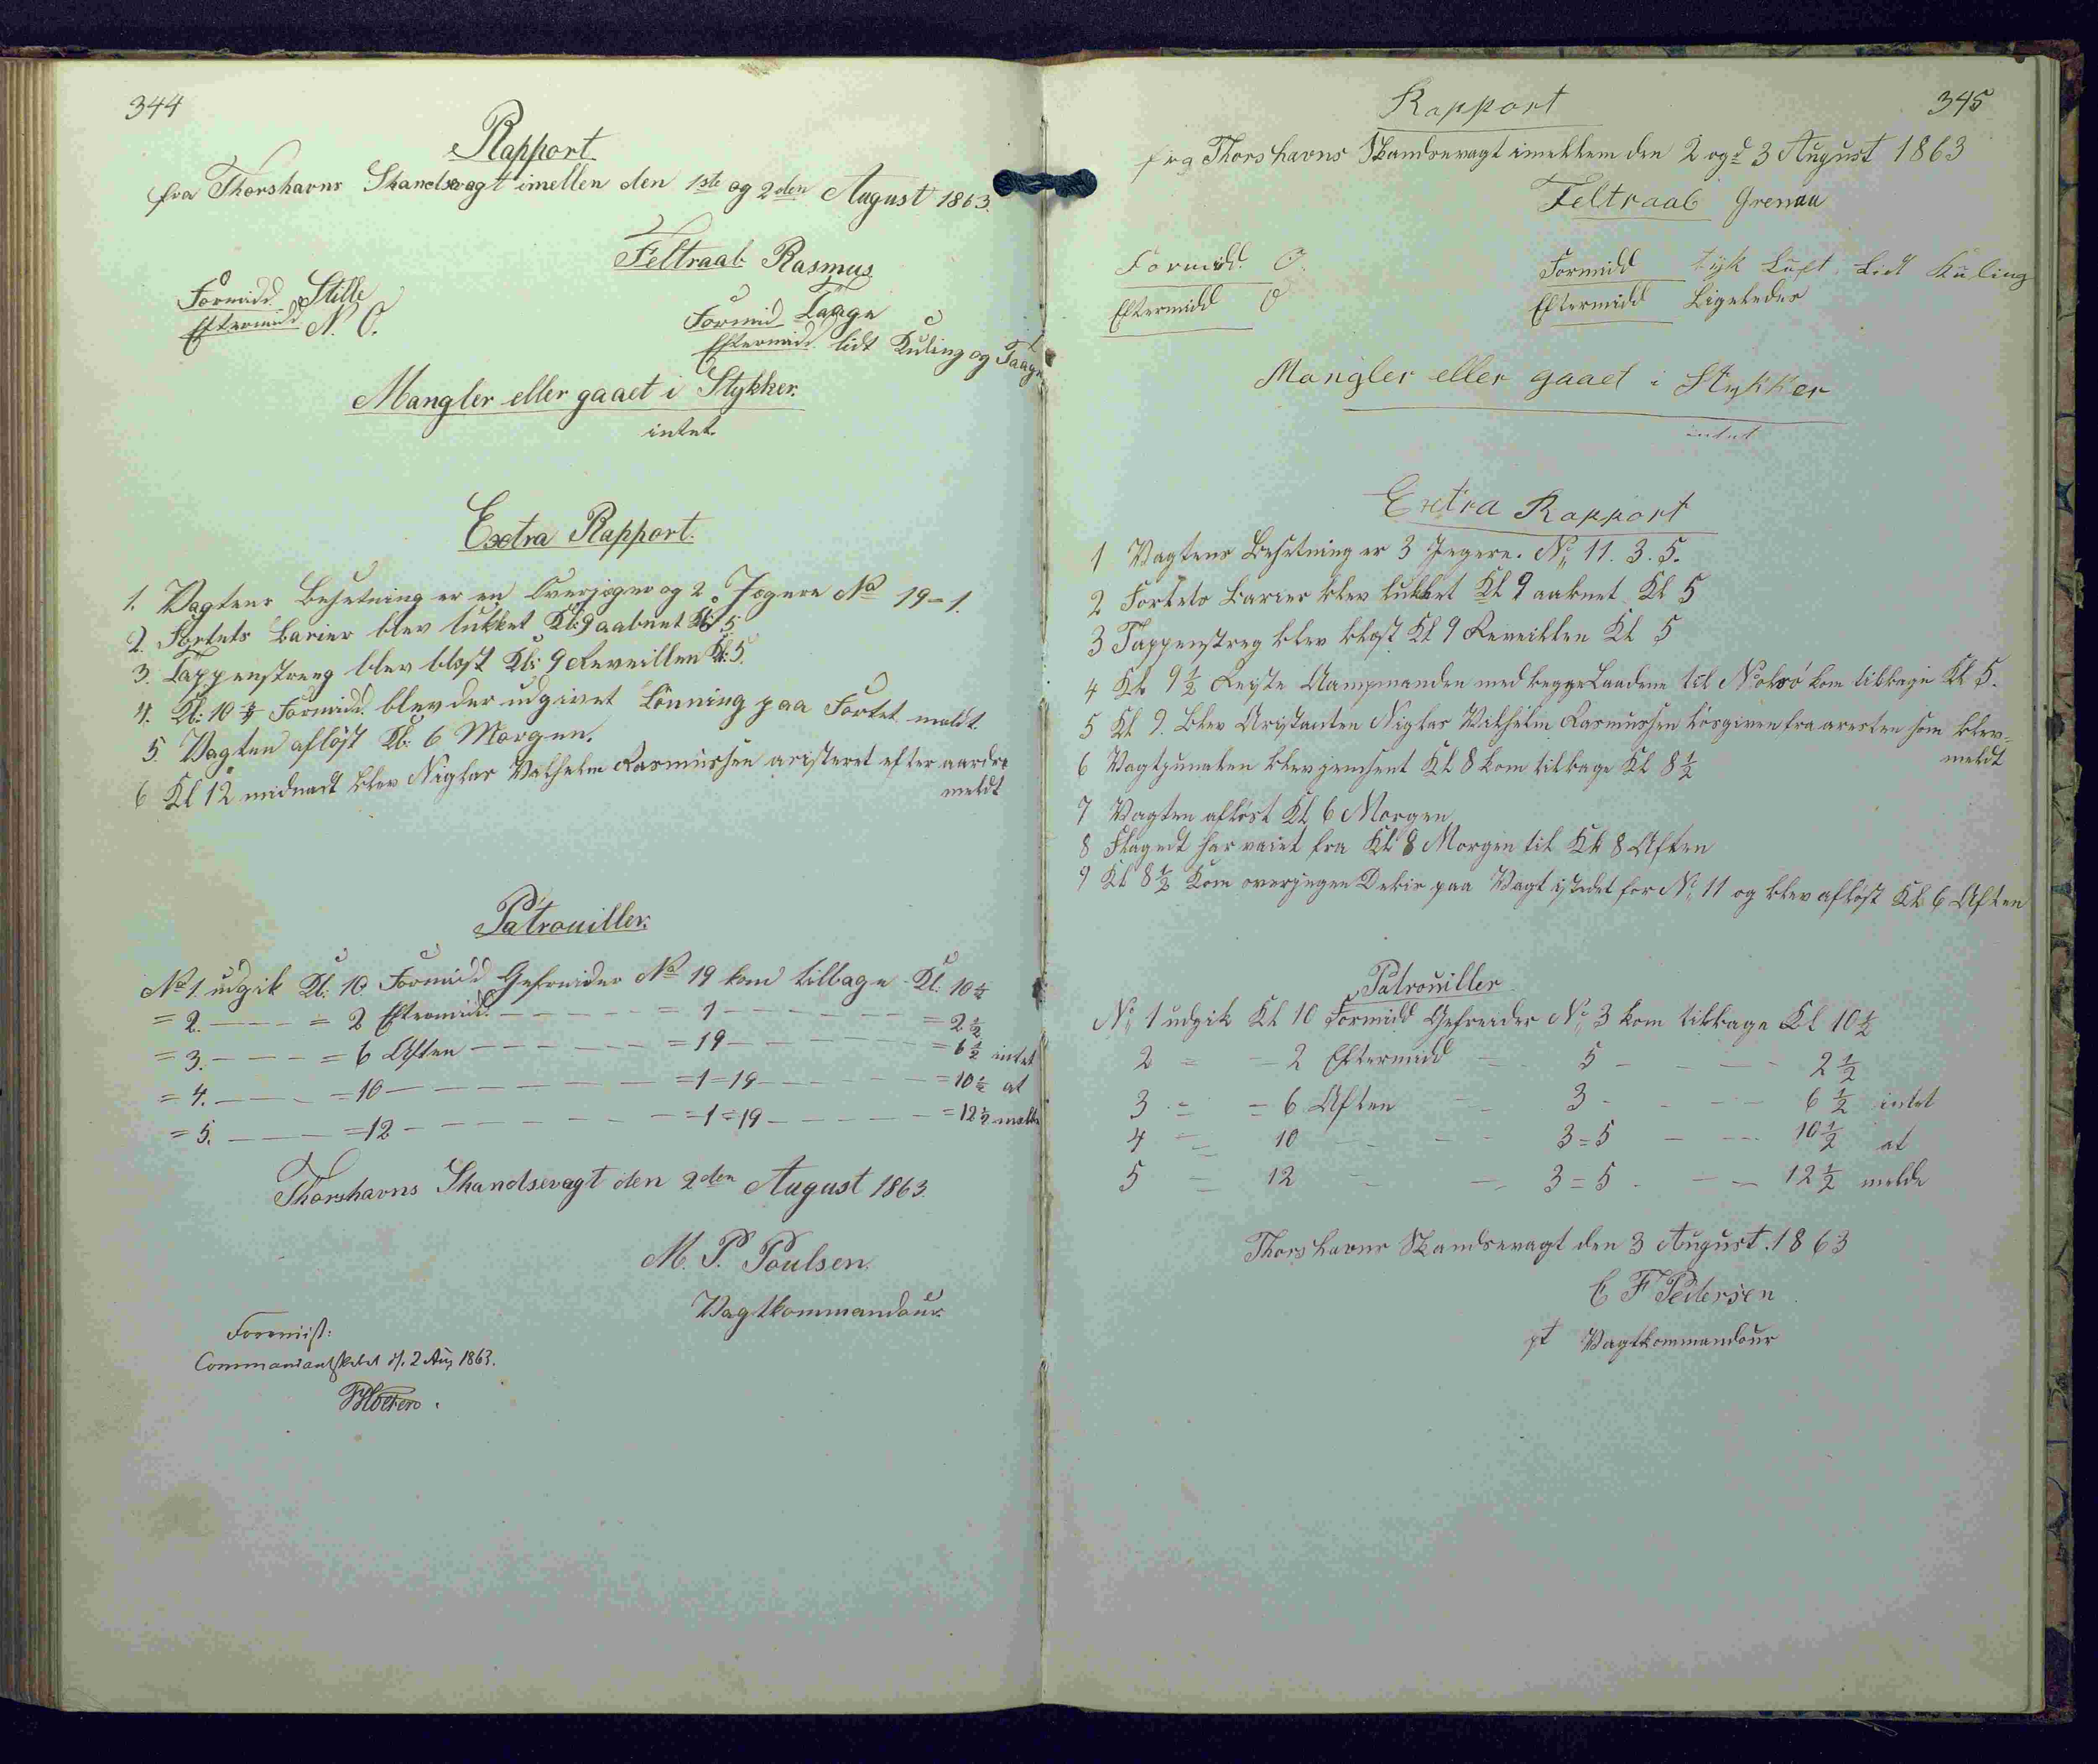 344
Rapport
fra Thorshavns Skandsevagt imellen den 1ste og 2den August 1863.
Feltraab Rasmus
Formidd Stille
Eftermidd N. O.
Formid Taage
Eftermidd. lidt Kuling og Taage
Mangler eller gaaet i Stykker.
intet.
Exstra Rapport.
1. Vagtens Besetning er en Overjæger og 2 Jægere No 19-1.
2. Fortets Barier blev lukket Kl: 9 aabnet Kl: 5.
3. Tappenstreg blev blæst Kl: 9 Reveillen Kl: 5.
4. Kl: 10 Formidd. blev der udgivet Lönning paa Fortet meldt.
5. Vagten aflöst Kl: 6 Morgen.
6 Kl 12 midnadt blev Niglas Valhelm Rasmussen aristeret efter aardre
meldt
Patrouiller.
No 1. udgik Kl: 10 Formidd Gefreider No 19 kom tilbage Kl. 10½
= 2. = 2 Eftermidd. = 1 = 2½
= 3. = 6 Aften = 19 = 6½ intet
= 4. = 10 = 1=19 = 10½ at
= 5. = 12 = 1=19 = 12½ melde
Thorshavns Skandsevagt den 2den August 1863.
M. P. Poulsen.
Vagtkommandeur.
Forevist:
Commandantskabet d. 2 Aug 1863.
345
Rapport
fra Thorshavns Skandsevagt imellem den 2 og d 3 August 1863
Feltraab Grenaa
Formidd. O.
Eftermidd O
Formidd tyk Luft. Lidt Kuling
Eftermidd Ligeledes
Mangler eller gaaet i Stykker
intet
Exstra Rapport
1 Vagtens Besetning er 3 Jegere. No 11. 3. 5.
2 Fortets Barier blev lukket Kl 9 aabnet Kl 5
3 Tappenstreg blev blæst Kl 9 Reveillen Kl 5
4 Kl 9½ Reiste Aampmanden med begge Baadene til Nolsö kom tilbage Kl 5.
5 Kl 9. Blev Aristanten Niglas Vilhelm Rasmussen lösgiven fra aresten som blev
meldt
6 Vagtpunalen blev jemsent Kl 8 kom tilbage Kl 8½
7 Vagten aflöst Kl 6 Morgen
8 Flagedt har vaiet fra Kl 8 Morgen til Kl 8 Aften
9 Kl 8½ Kom overjegen paa Vagt istedet for No 11 og blev aflöst Kl 6 Aften
Patrouiller
No 1 udgik Kl 10 Formidd Gefreider No 3 kom tilbage Kl 10½
2 = 2 Eftermidd 5 2½
3 = 6 Aften 3 6½ intet
4 = 10 3=5 10½ at
5 = 12 3=5 12½ melde
Thorshavns Skandsevagt den 3 August. 1863
C F Pedersen
pt Vagtkommandeur